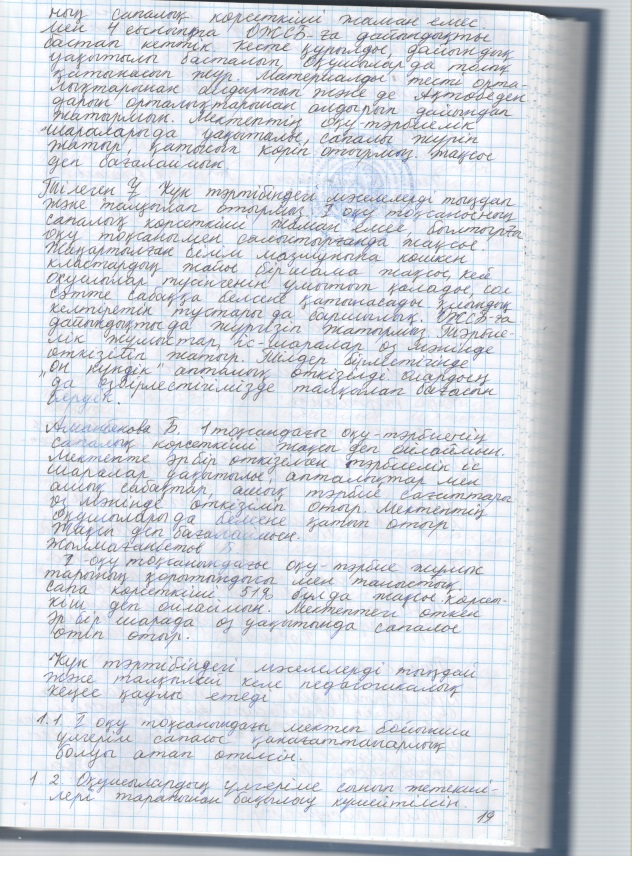 ның сапалық көрсеткіші жаман емес
Мен 4 сыныпқа ОЖСБ-ға дайындықты
бастап кеттік. Кесте құрылды, дайындық
уақытылы басталып Оқушылар да толық
қатынасып жүр. Материалды тест орта-
лықтарынан алдыртып және де Ақтөбеден
дарын орталықтарынан алдырып дайындап
жатырмын. Мектептің оқу-тәрбиелік
шаралары да уақыталы, сапалы жүріп
жатыр, қатысып көріп отырмыз. Жақсы
деп бағалаймын
Тілеген У Күн тәртібіндегі мәселелерді тыңдап
және талқылап отырмыз. I оқу тоқсанының
сапалық көрсеткіші жаман емес, былтырғы
оқу тоқсанымен салыстырғанда жақсы.
Жаңартылған білім мазмұнына көшкен
кластардың жайы біршама жақсы, кей
оқушылар түсінгенін ұмытып қалады, сол
сәтте сабаққа белсене қатынасады қиындық
келтіретін тұстары да баршылық. ОЖСБ-ға
дайындықты да жүргізіп жатырмыз Тәрбие-
лік жұмыстар, іс-шаралар өз мәнінде
өткізіліп жатыр. Пәндер бірлестігінде
„Он күндік" апталық өткізілді олардың
да бірлестігімізде талқылап бағасын
бердік.
Аманбекова Б. 1 тоқсандағы оқу-тәрбиенің
сапалық көрсеткіші жақсы деп ойлаймын.
Мектепте әрбір өткізілген тәрбиелік іс
шаралар уақытылы, апталықтар мен
ашық сабақтар, ашық тәрбие сағаттары
өз мәнінде өткізіліп отыр. Мектептің
Оқушылары да белсене қатып отыр.
Жақсы деп бағалаймын.
Жылмағанбетов Б
I-оқу тоқсанындағы оқу-тәрбие жұмыс
тарының қорытындысы мен таныстық
сапа көрсеткіші 51% бұл да жақсы көрсет-
кіш деп ойлаймын. Мектептегі өткен
әр бір шарада өз уақытында сапалы
өтіп отыр.
Күн тәртібіндегі мәселелерді тыңдай
және талқылай келе педагогикалық
кеңес қаулы етеді
1.1 I оқу тоқсанындағы мектеп бойынша
үлгерім сапасы қанағаттанарлық
болуы атап өтілсін.
1 2 Оқушылардың үлгеріміне сынып жетекші-
лері тарапынан бақылау күшейтілсін.
19